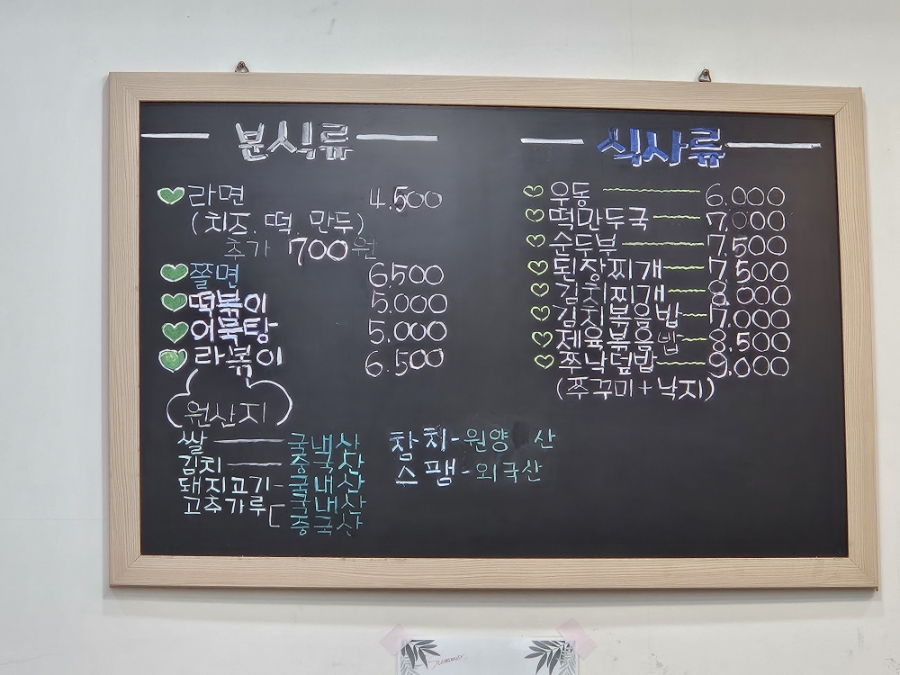 분식류
라면 4.500
(치즈. 떡. 만두)
추가 700원
쫄면 6.500
떡볶이 5.000
어묵탕 5.000
라볶이 6.500
식사류
우동 6.000
떡만두국 7.000
순두부 7.500
된장찌개 7.500
김치찌개 8.000
김치볶음밥 7.000
제육볶음밥 8.500
쭈낙덮밥 9.000
(쭈꾸미+낙지)
원산지
쌀 국내산
김치 중국산
돼지고기- 국내산
고추가루[ 국내산
중국산
참치-원양 산
스팸-외국산
Summer